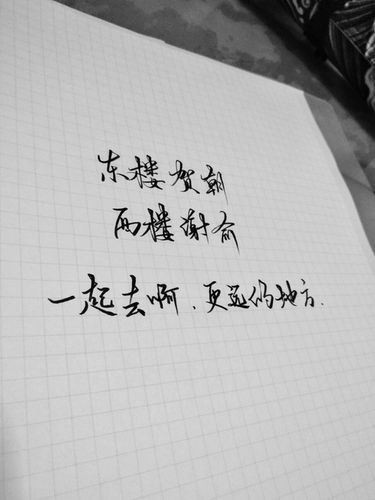 东楼贺朝
西楼谢俞
一起去啊.更远的地方.